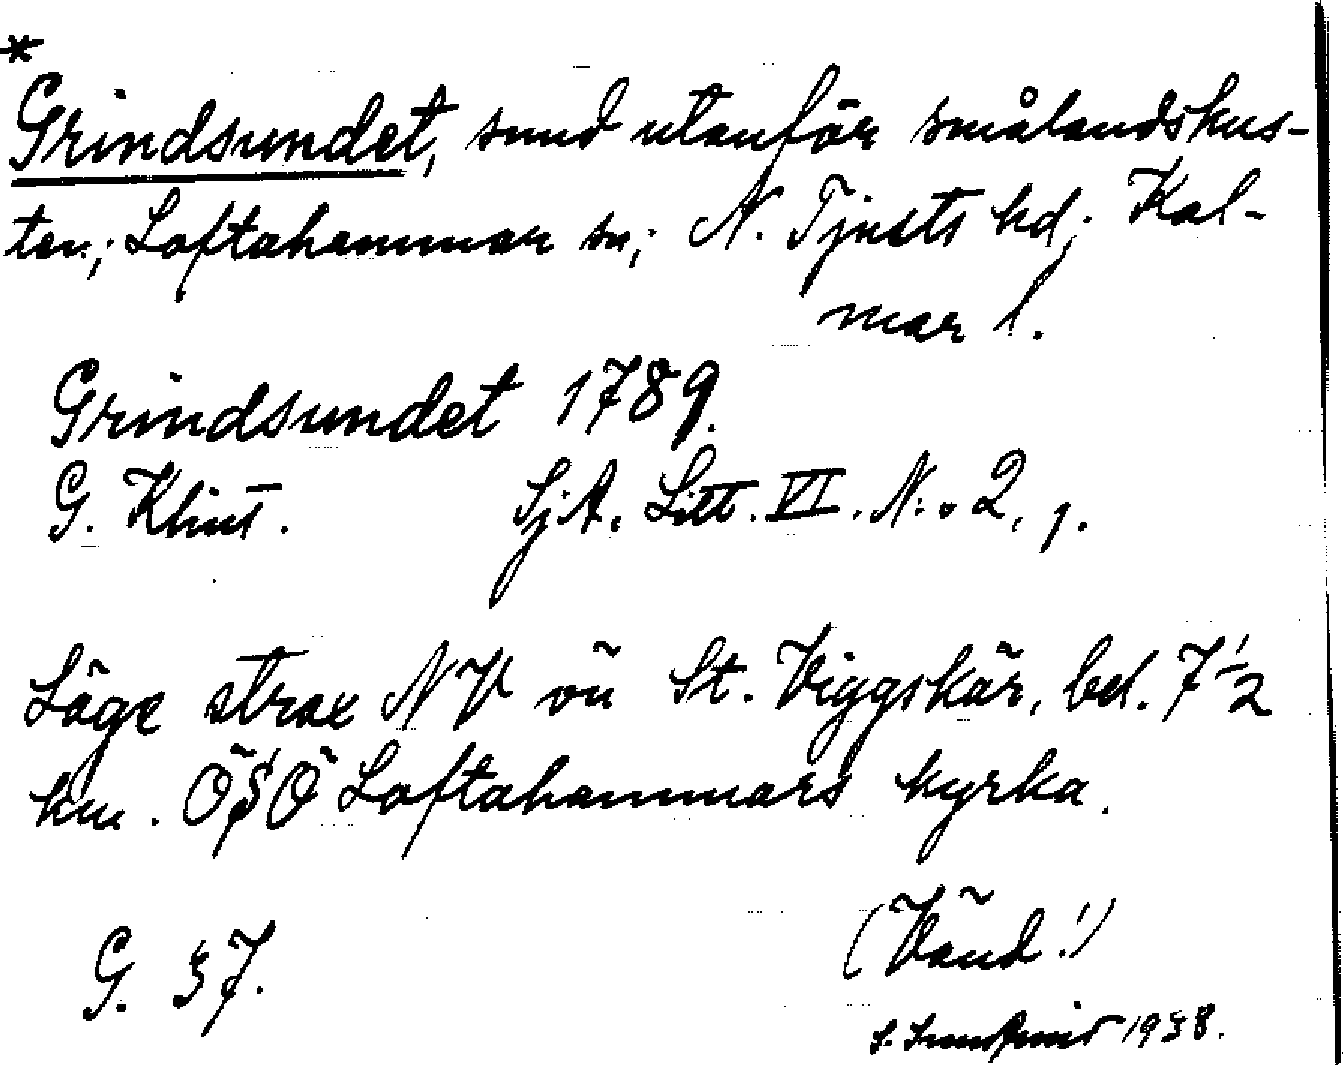 *
Grindsundet, sund utanför smålandskus-
ten; Loftahammar sn; N. Tjusts hd; Kal-
mar l.
Grindsundet 1789.
G. Klint. SjA. Litt. VI. N:o 2, 1.
Läge strax NV om St. Viggskär, bel. 7 1/2
km. ÖSÖ Loftahammars kyrka.
(Vänd!)
G. 37.
1938.